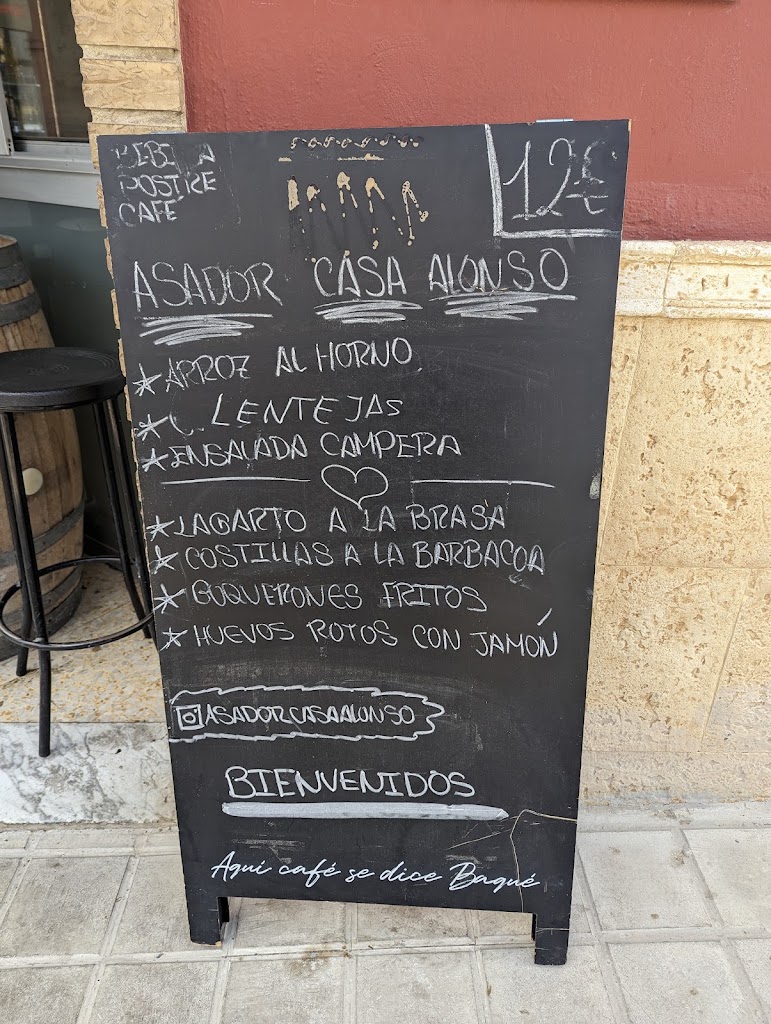 POSTRE
CAFE
12€
ASADOR CASA ALONSO
*ARROZ AL HORNO
* LENTEJAS
*ENSALADA CAMPERA
*LAGARTO A LA BRASA
*COSTILLAS A LA BARBACOA
*BOQUERONES FRITOS
*HUEVOS ROTOS CON JAMÓN
ASADORCASAALONSO
BIENVENIDOS
Aquí café se dice Baqué